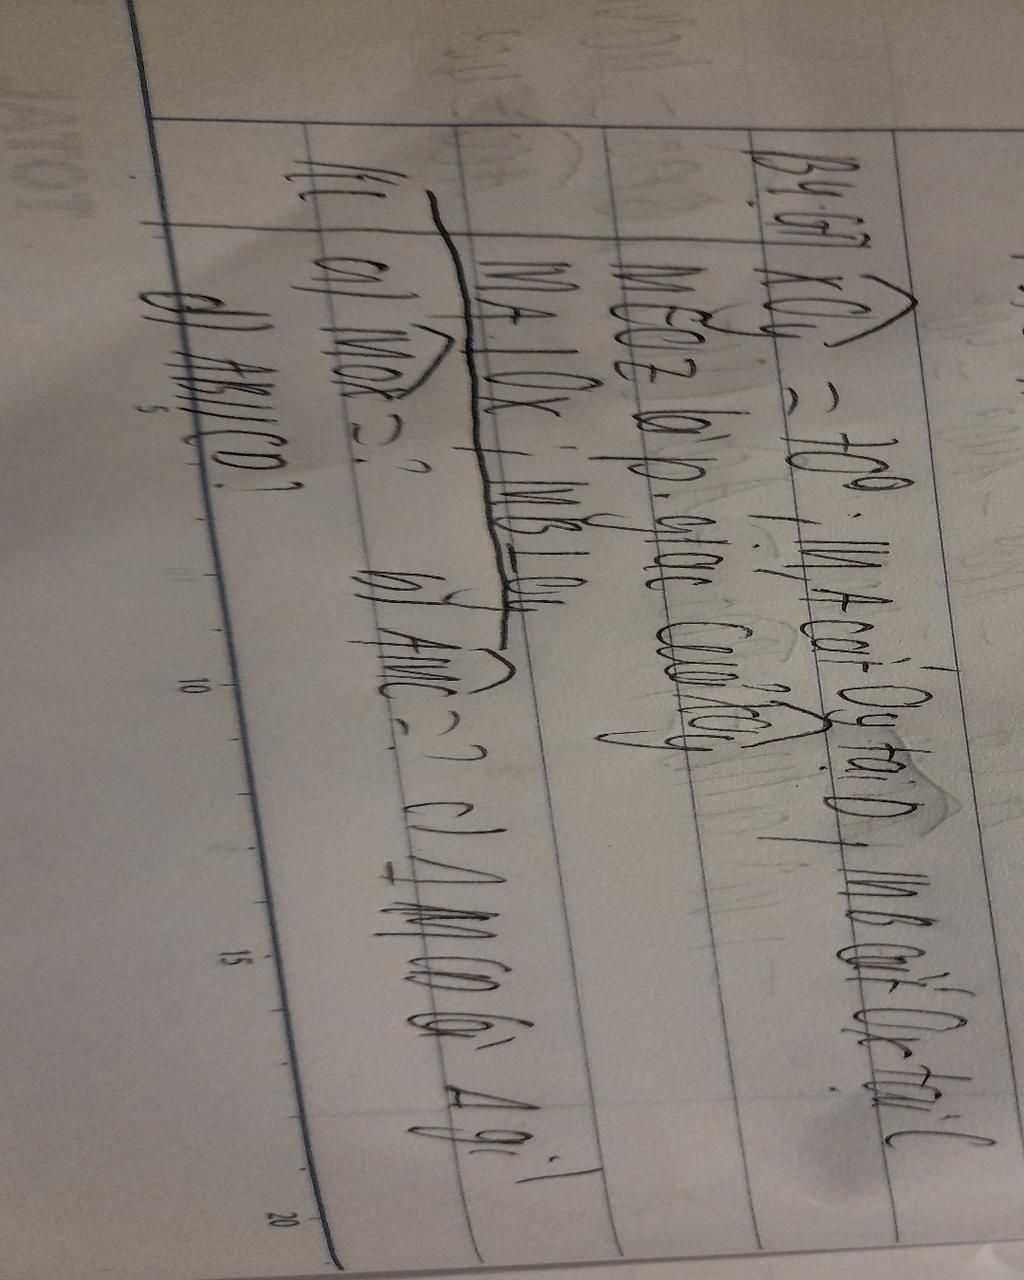 Bài: Góc xOy = 70°; MA cắt Oy tại D; MB cắt Ox tại C
M ∈ Oz là p. giác của xOy
MA ⊥ Ox; MB ⊥ Oy
KL a) MOx = ? b) AMC = ? c) Δ MCD là Δ gì
d) AB//CD?
5 10 15 20